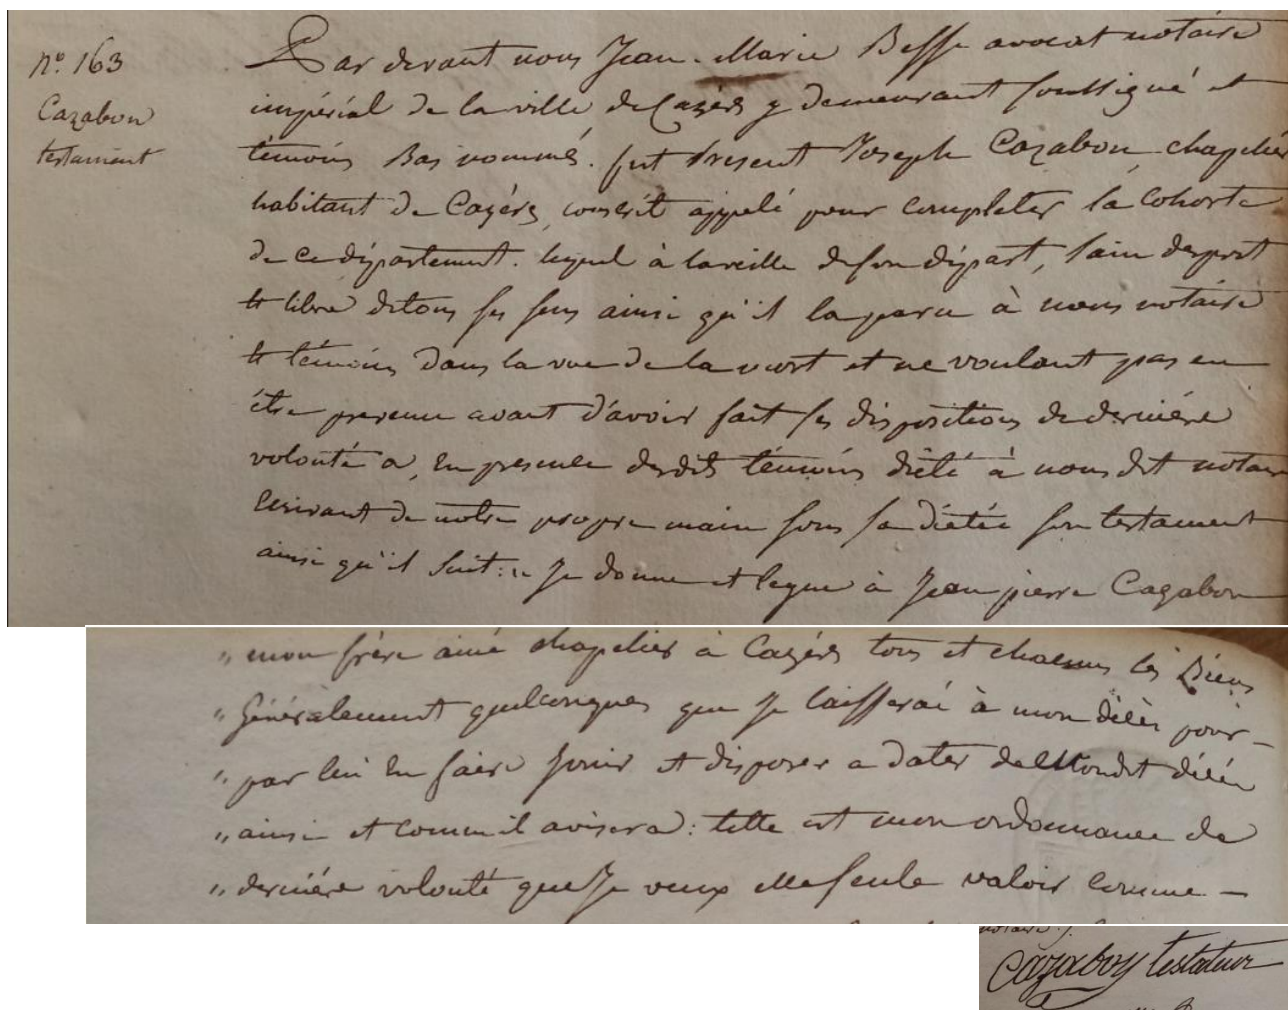 n.° 163
Cazabon
testament
Par devant nous Jean-Marie Besse avocat notaire
impérial de la ville de Cazéres y demeurant soussigné et
témoins Bas nommés. fut Present Joseph Cazabon chapelier
habitant de Cazéres, conscrit appelé pour completer la Cohorte
de ce département. lequel à la veille de son départ, sain desprit
et libre de tous ses sens ainsi qu'il la paru à nous notaire
et témoins dans la vue de la mort et ne voulant pas en
être prevenu avant d'avoir fait ses dispositions de derniére
volonté a, en presence desdits témoins dicté à nous dit notaire
Ecrivant de notre propre main sous sa dictée son testament
ainsi qu'il suit: " Je donne et legue à Jean pierre Cazabon
" mon frère ainé chapelier à Cazérés tous et chacuns les Biens
" Généralement quelconques que je laisserai à mon décès pour
" par lui En faire Jouir et disposer a dater de mondit décés
" ainsi et comme il avisera: telle est mon ordonnance de
" derniére volonté que Je veux elle seule valoir comme —
notaire ./.
Cazaboy testateur